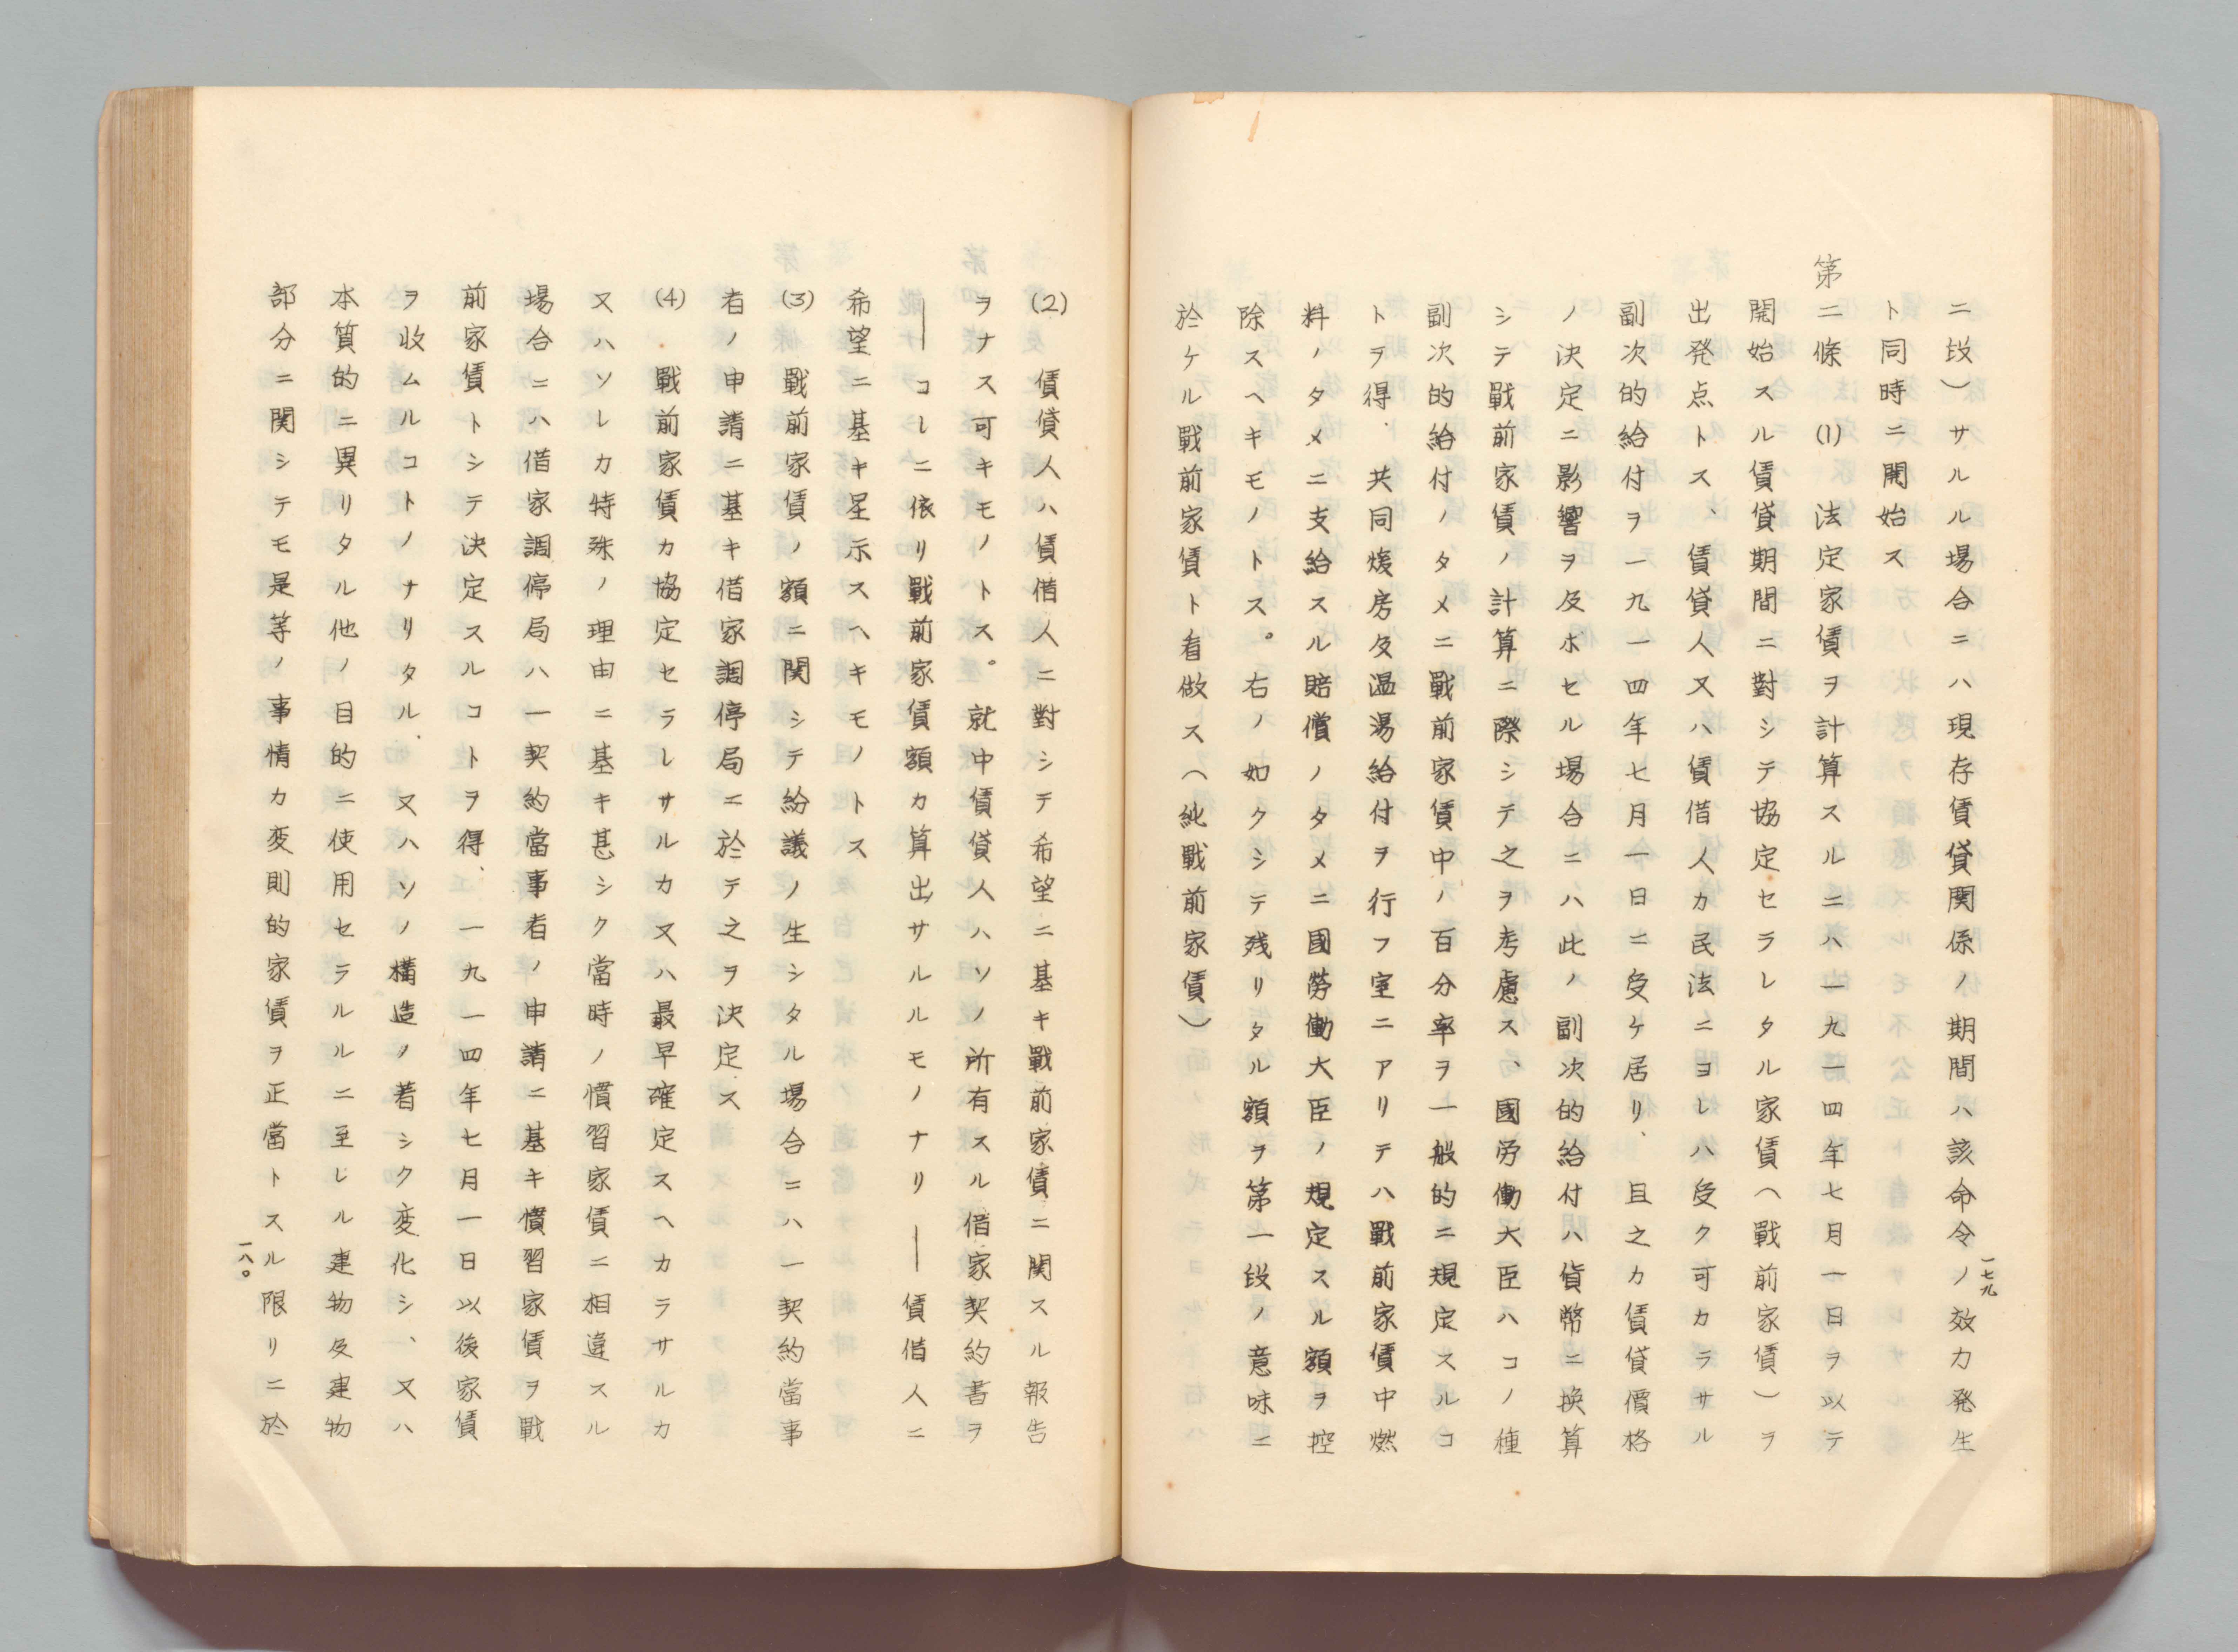 ニ𭮱）サルル場合ニハ現存賃貸関係ノ期間ハ該命令ノ效力発生
ト同時ニ開始ス
第二條　(1)　法定家賃ヲ計算スルニハ一九一四年七月一日ヲ以テ
開始スル賃貸期間ニ對シテ協定セラレタル家賃（戰前家賃）ヲ
出発点トス、賃貸人又ハ賃借人カ民法ニヨレハ受ク可カラサル
副次的給付ヲ一九一四年七月一日ニ受ケ居リ、且之カ賃貸價格
ノ決定ニ影響ヲ及ホセル場合ニハ此ノ副次的給付ハ貨幣ニ換算
シテ戰前家賃ノ計算ニ際シテ之ヲ考慮ス、國労働大臣ハコノ種
副次的給付ノタメニ戰前家賃中ノ百分率ヲ一般的ニ規定スルコ
トヲ得．共同煖房及温湯給付ヲ行フ室ニアリテハ戰前家賃中燃
料ノタメニ支給スル賠償ノタメニ國勞働大臣ノ規定スル額ヲ控
除スヘキモノトス。右ノ如クシテ残リタル額ヲ第一段ノ意味ニ
於ケル戰前家賃ト看做ス（純戰前家賃）
一七九
(2)　賃貸人ハ賃借人ニ對シテ希望ニ基キ戰前家賃ニ関スル報告
ヲナス可キモノトス。就中賃貸人ハソノ所有スル借家契約書ヲ
――コレニ依リ戰前家賃額カ算出サルルモノナリ――賃借人ニ
希望ニ基キ呈示スヘキモノトス
(3)　戰前家賃ノ額ニ関シテ紛議ノ生シタル場合ニハ一契約當事
者ノ申請ニ基キ借家調停局ニ於テ之ヲ決定ス
(4)　戰前家賃カ協定セラレサルカ又ハ最早確定スヘカラサルカ
又ハソレカ特殊ノ理由ニ基キ甚シク當時ノ慣習家賃ニ相違スル
場合ニハ借家調停局ハ一契約當事者ノ申請ニ基キ慣習家賃ヲ戰
前家賃トシテ決定スルコトヲ得、一九一四年七月一日以後家賃
ヲ收ムルコトノナリタル、又ハソノ構造ノ著シク変化シ、又ハ
本質的ニ異リタル他ノ目的ニ使用セラルルニ至レル建物及建物
部分ニ関シテモ是等ノ事情カ変則的家賃ヲ正當トスル限リニ於
一八〇